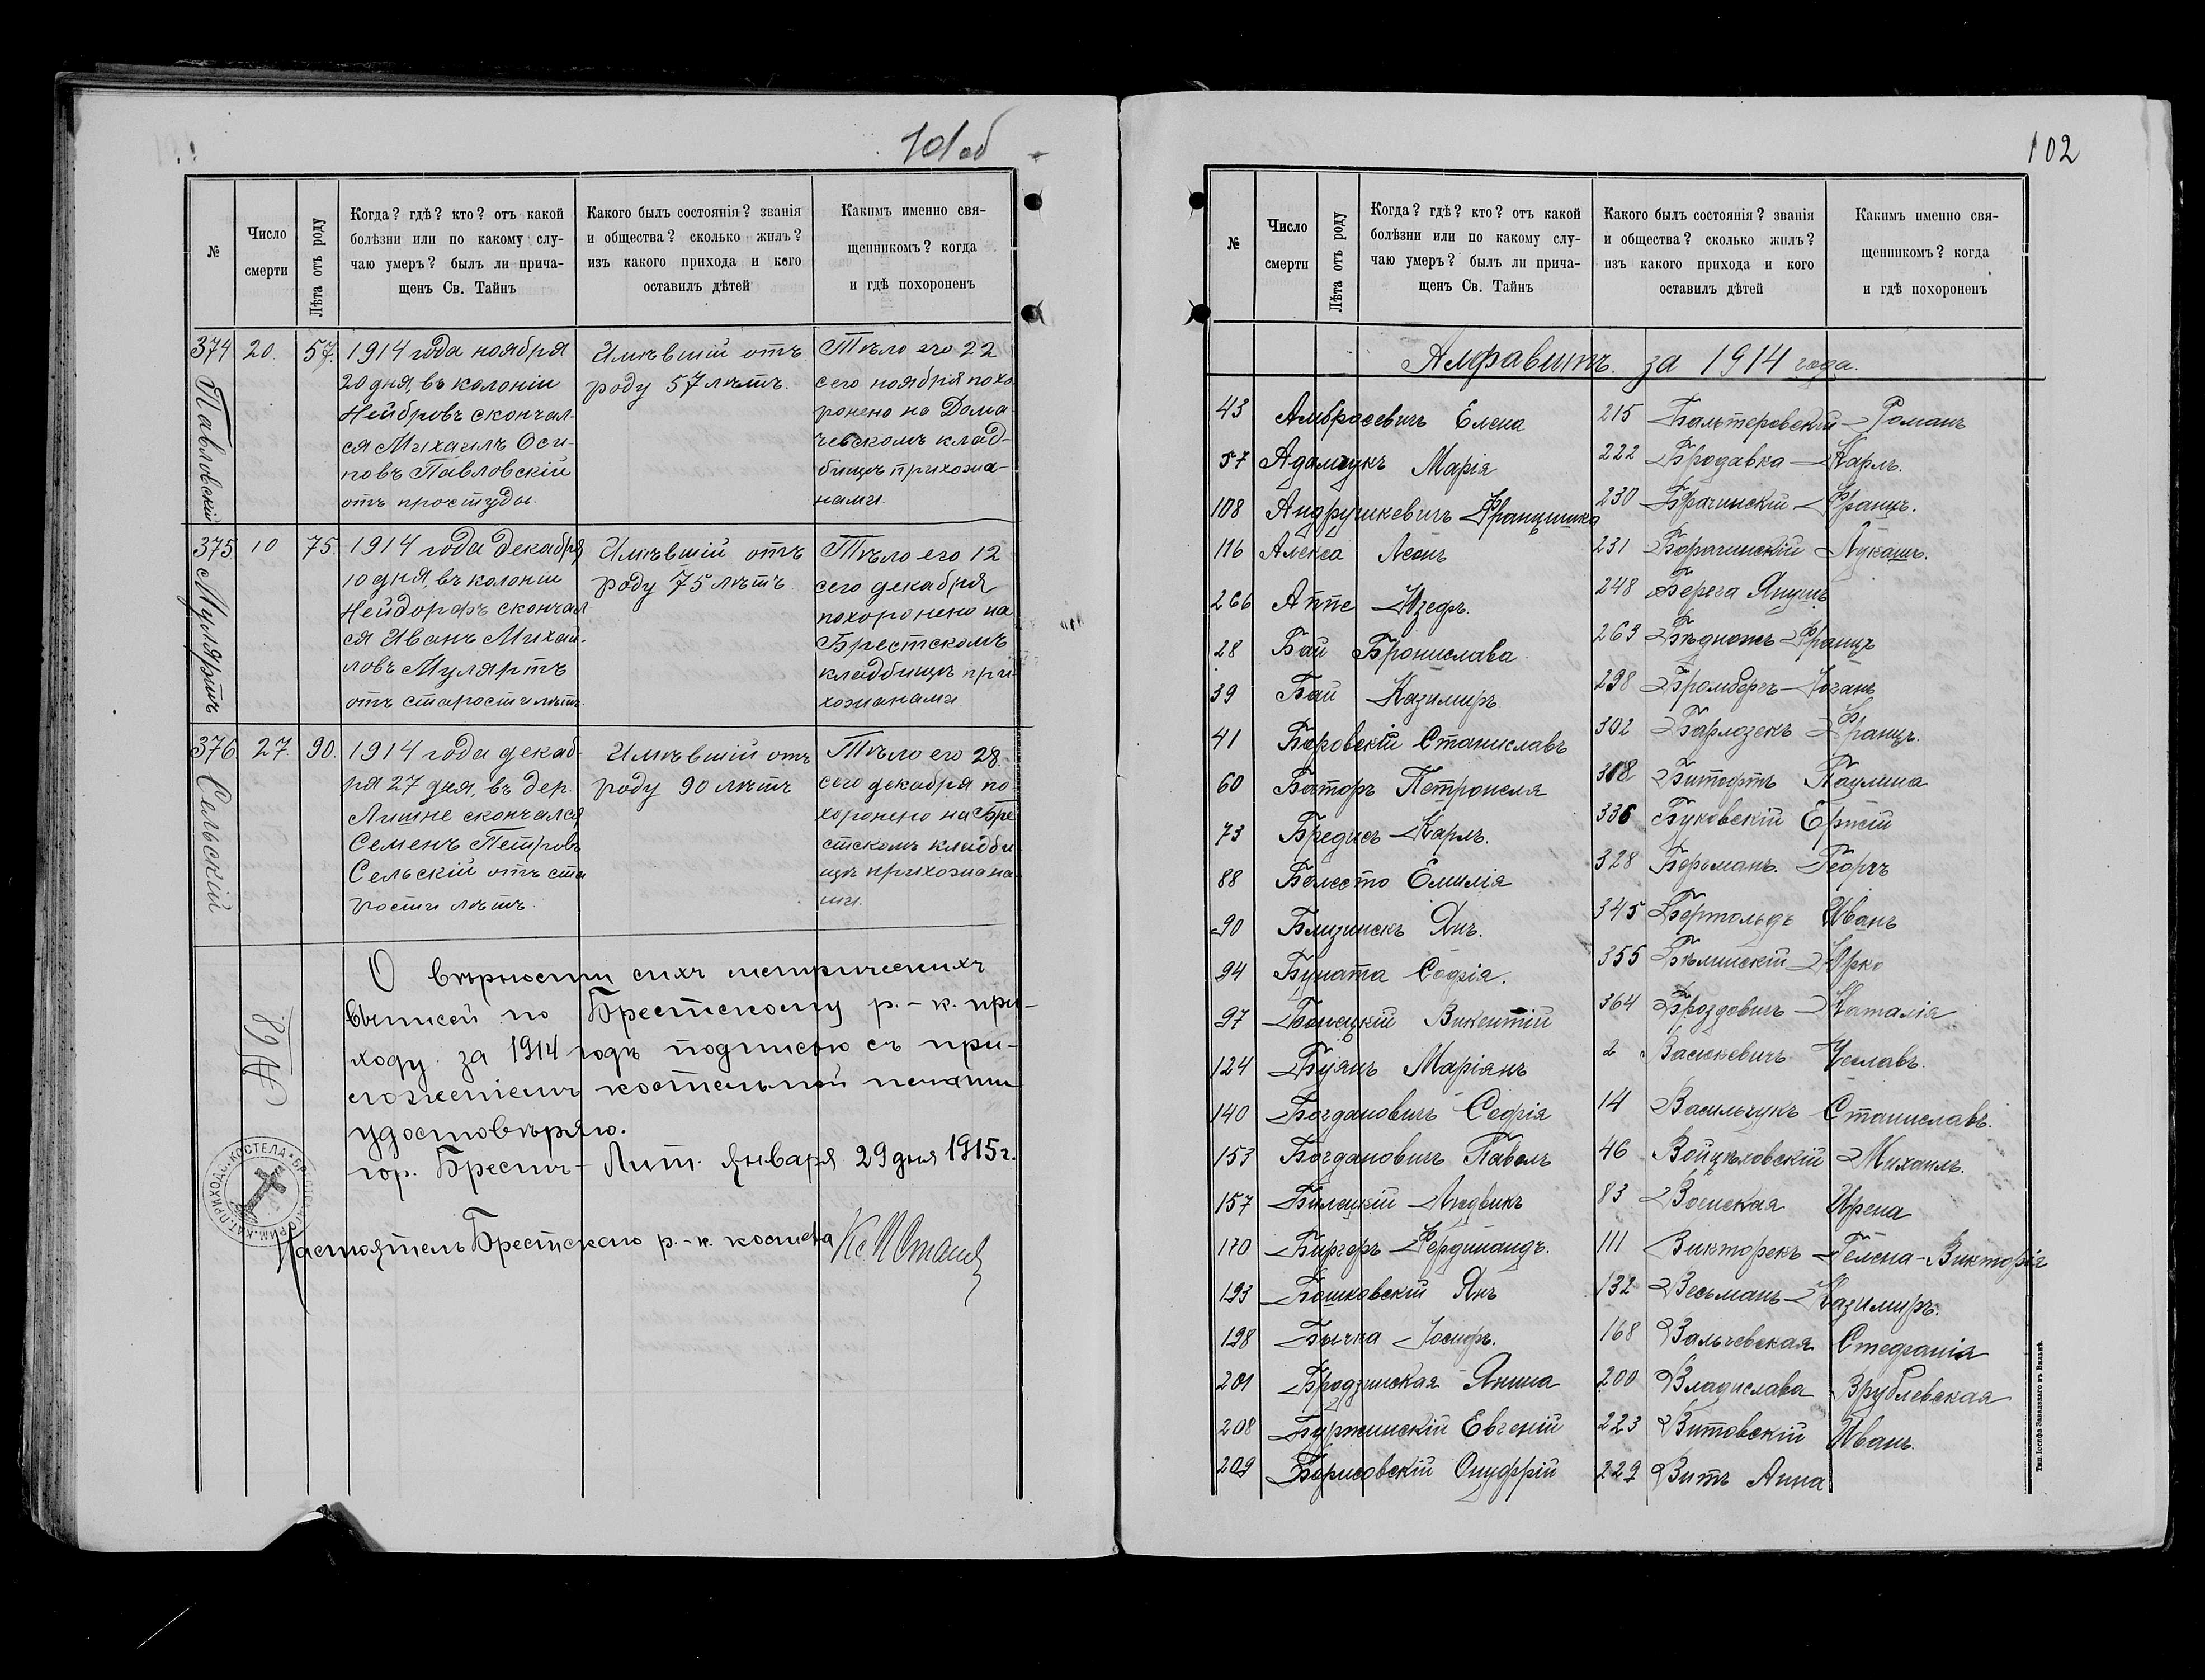 101 об
№
Число
смерти
Лѣта отъ роду
Когда? гдѣ? кто? отъ какой
болѣзни или по какому слу-
чаю умеръ? былъ ли прича-
щенъ Св. Тайнъ
Какого былъ состоянія? званія
и общества? сколько жилъ?
изъ какого прихода и кого
оставилъ дѣтей
Какимъ именно свя-
щенникомъ? когда
и гдѣ похороненъ
374
Павловскій
20.
57.
1914 года ноября
20 дня, въ колоніи
Нейбровъ скончал-
ся Михаилъ Оси-
повъ Павловскій
отъ простуды.
Имѣвшій отъ
роду 57 лѣтъ.
Тѣло его 22
сего ноября похо
ронено на Дома
чевскомъ клад-
бищѣ прихожа-
нами.
375
Мулярть
10
75.
1914 года декабря
10 дня, въ колоніи
Нейдорфъ скончал
ся Иванъ Михай-
ловъ Мулартъ
отъ старости лѣтъ.
Имѣвшій отъ
роду 75 лѣтъ.
Тѣло его 12
сего декабря
похоронено на
Брестскомъ
кладбищѣ при
хожанами
376
Сельскій
27.
90.
1914 года декаб-
ря 27 дня, въ дер.
скончался
Семенъ Петровъ
Сельскій отъ ста
рости лѣтъ.
Имѣвшій отъ
роду 90 лѣтъ
Тѣло его 28
сего декабря по-
хоронено на Бре
стскомъ кладби
щѣ прихожана-
ми.
О вѣрности сихъ метрическихъ
выписей по Брестскому р.-к. при-
ходу за 1914 годъ подписью съ при-
ложеніемъ костельной печати
удостовѣряю.
гор. Брестъ-Лит. января 29 дня 1915 г.
Настоятель Брестскаго р.-к. костела
102
№
Число
смерти
Лѣта отъ роду
Когда? гдѣ? кто? отъ какой
болѣзни или по какому слу-
чаю умеръ? былъ ли прича-
щенъ Св. Тайнъ
Какого былъ состоянія? званія
и общества? сколько жилъ?
изъ какого прихода и кого
оставилъ дѣтей
Какимъ именно свя-
щенникомъ? когда
и гдѣ похороненъ
Алфавитъ за 1914 года.
43 Амбросевичъ Елена
57 Адамчукъ Марія
108 Андрушкевичъ Францишка
116 Алекса Леонъ
266 Аппе Юзефъ.
28 Бай Бронислава
39 Бай Казимиръ.
41 Боровскій Станиславъ
60 Баторъ Петронеля
73 Бредисъ Карлъ.
88 Болесто Емилія
90 Янъ.
94 Буната Софія.
97 Бонецкій Викентій
124 Буянъ Маріянъ
140 Богдановичъ Софія
153 Богдановичъ Павелъ
157 Билецкій Людвикъ
170 Биргеръ Фердинандъ.
193 Бошковскій Янъ
198 Бычка Іосифъ.
201 Бродзинская Янина
208 Буржинскій Евгеній
209 Борисовскій Онуфрій
215 Бальтеровскій Романъ
222 Бродавка Карлъ.
230 Францъ.
231 Лукашъ.
248 Берега Янушъ
263 Бѣднажъ Францъ
298 Бромбергъ Юганъ
302 Барлозекъ Францъ.
318 Битофтъ Паулина
336 Буковскій
328 Берьманъ. Георгъ
345 Бертольдъ Иванъ
355 Бѣлинскій Юрко
364 Броздовичъ Наталія
2 Васюкевичъ Чеславъ.
14 Васильчукъ Станиславъ.
46 Войцѣловскій Михаилъ.
83 Воинская Ирена
111 Викторекъ Гелена-Викторія
132 Весьманъ Казимиръ.
168 Вальчевская Стефанія
200 Владислава Врублевская
223 Витовскій Иванъ.
229 Витъ Анна
Тип. Іосифа Завадзкаго въ Вильнѣ.